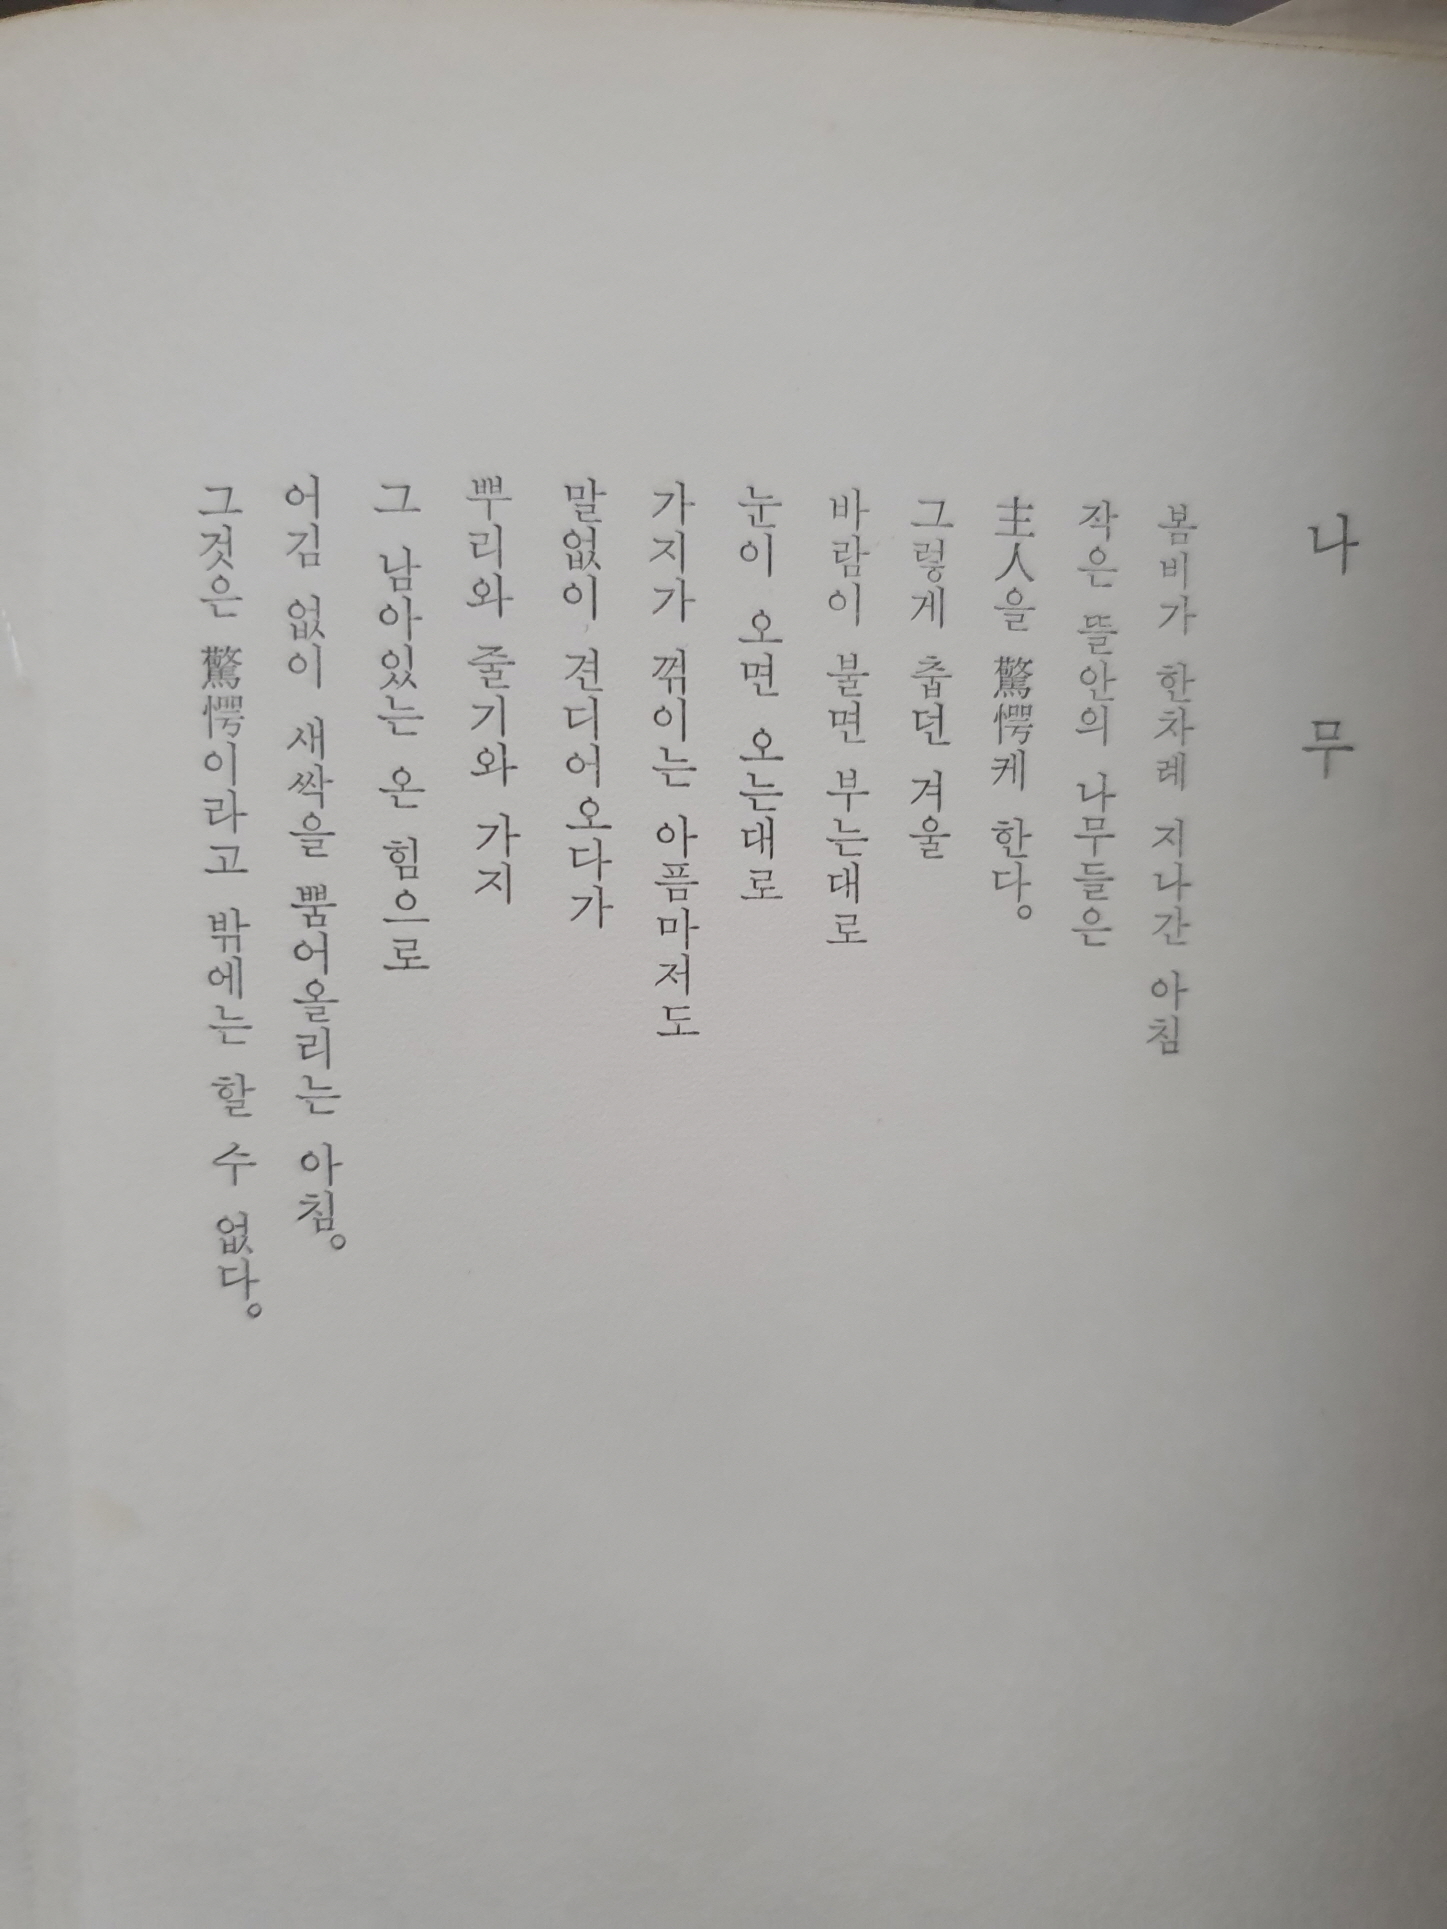 나무
봄비가 한차례 지나간 아침
작은 뜰안의 나무들은
主人을 驚愕케 한다。
그렇게 춥던 겨울
바람이 불면 부는대로
눈이 오면 오는대로
가지가 꺾이는 아픔마저도
말없이 견디어오다가
뿌리와 줄기와 가지
그 남아있는 온 힘으로
어김 없이 새싹을 뿜어올리는 아침。
그것은 驚愕이라고 밖에는 할 수 없다。